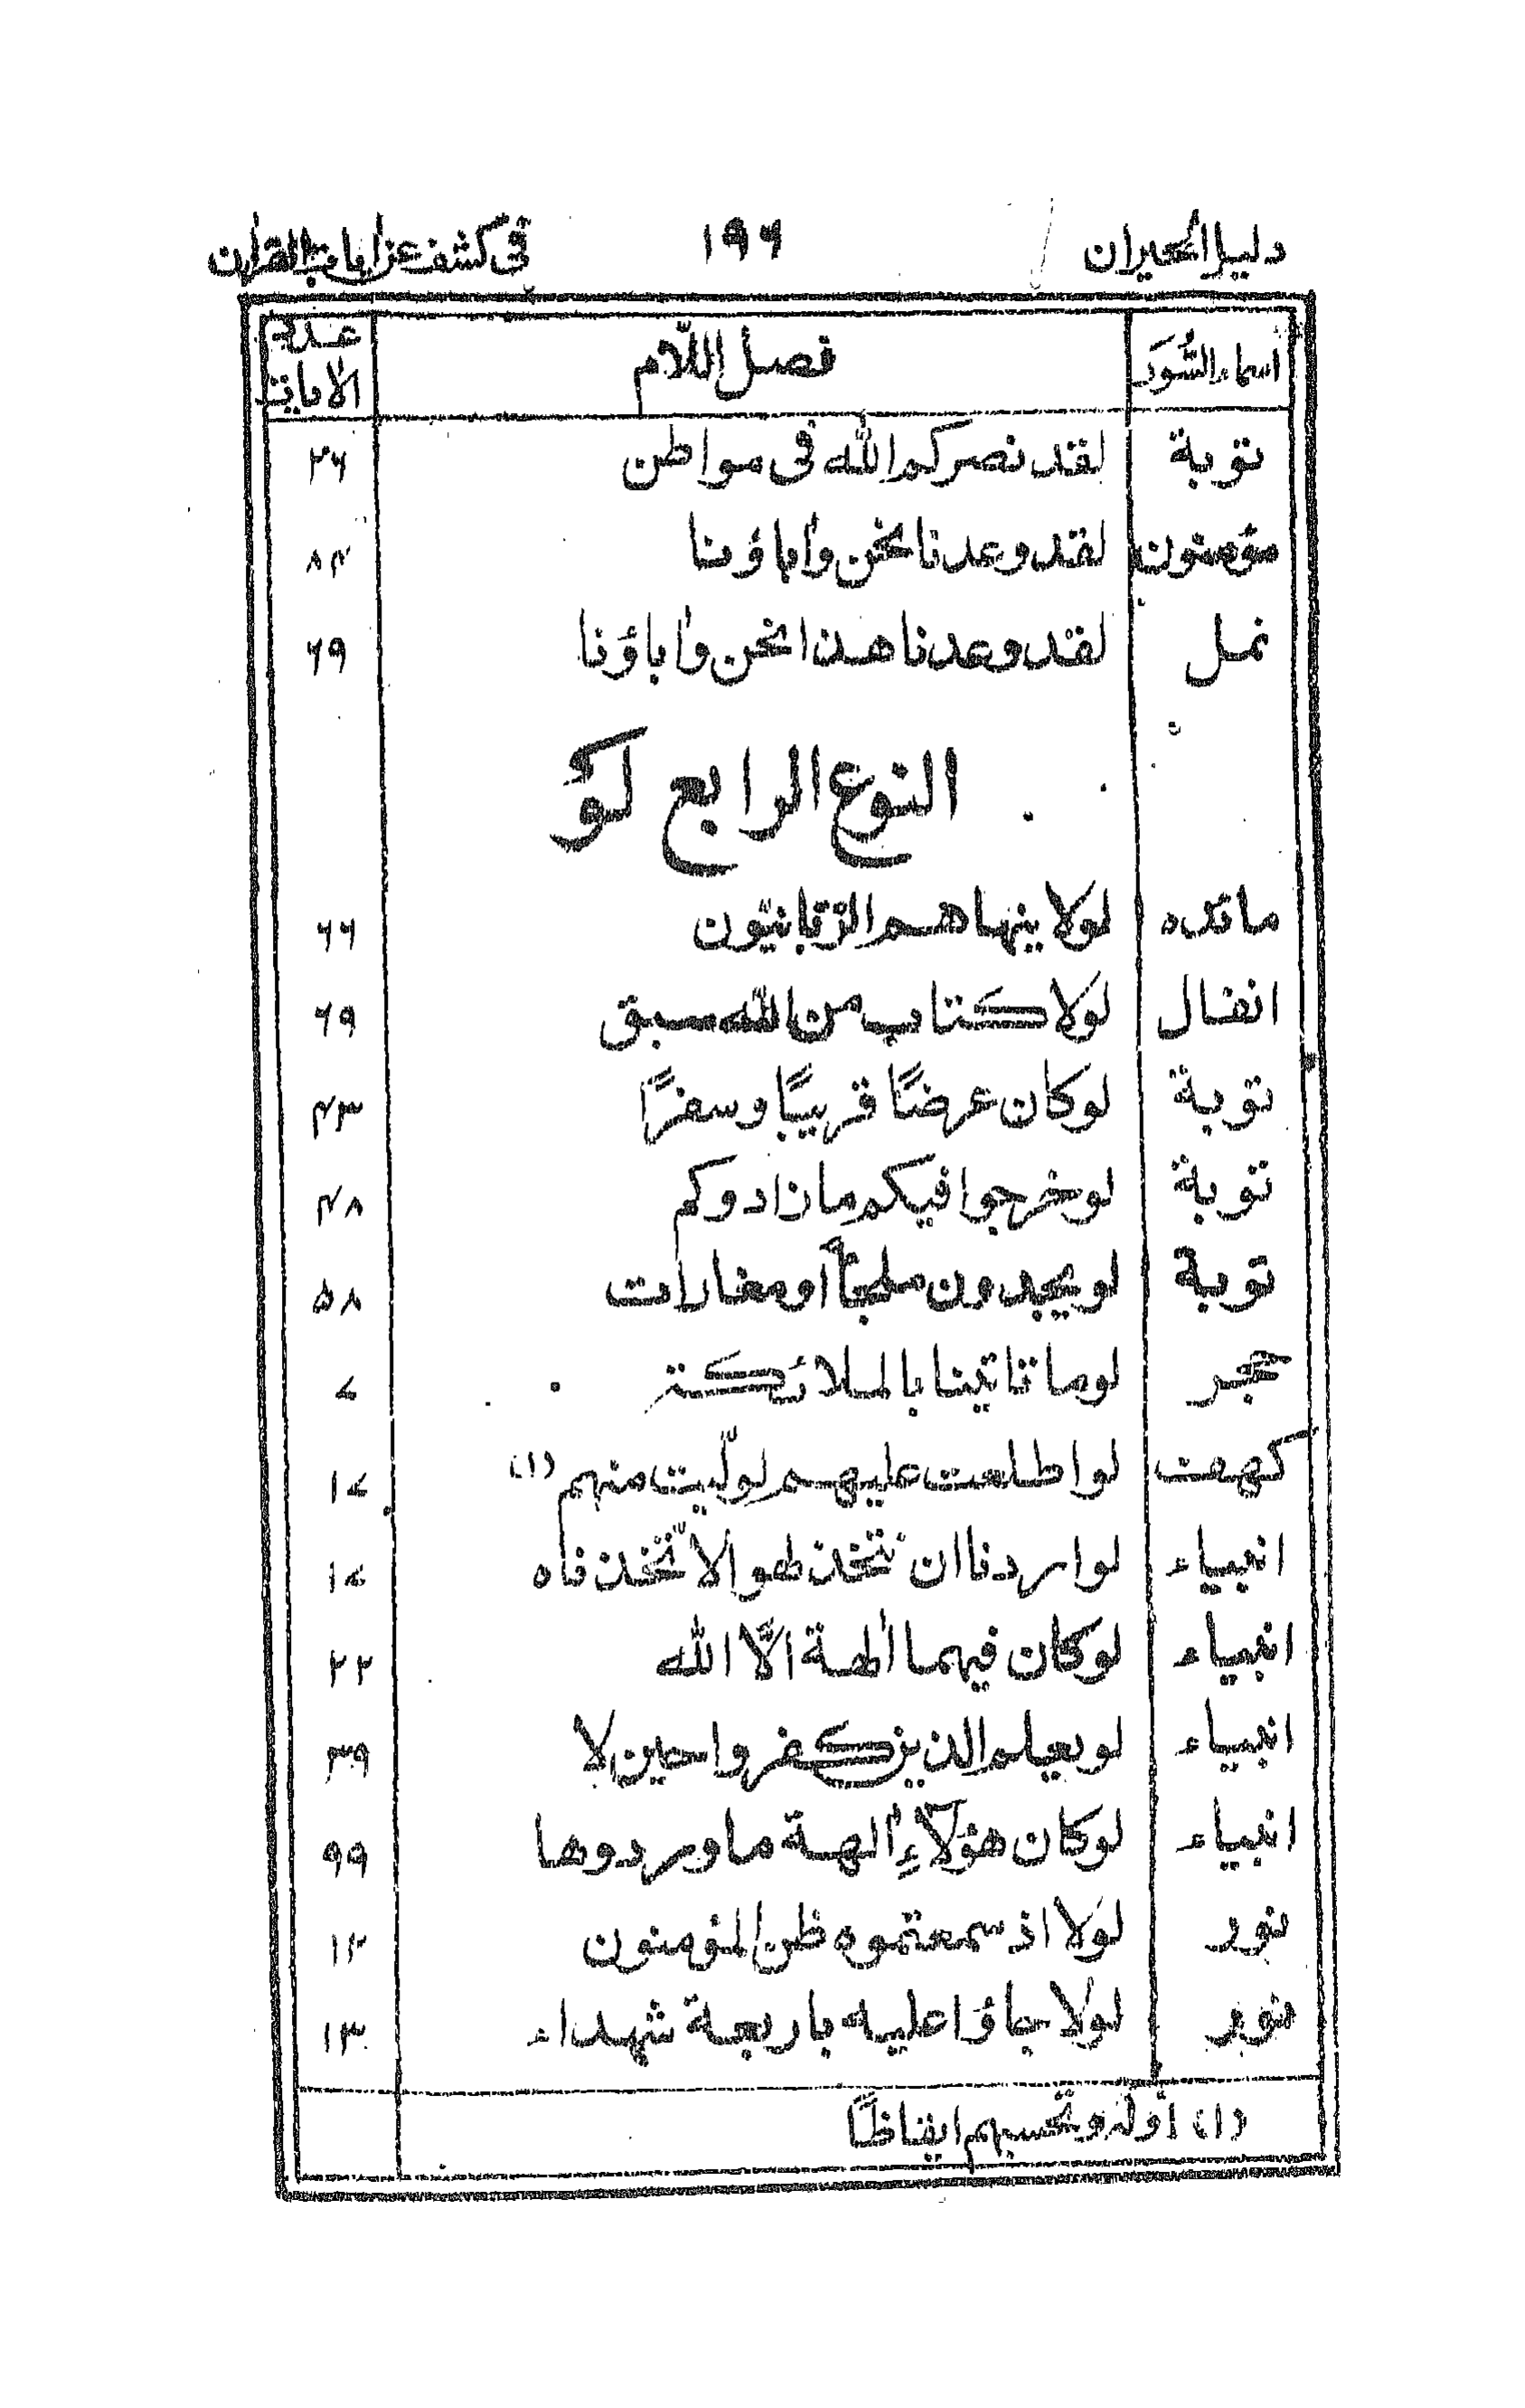 دليل الحيران ١٩٦ في كشف عن ايات القرآن
اسماء السُّوَر فصل اللّام عدد الآيات
توبة لقد نصركم الله في مواطن ٢٦
مؤمنون لقد وعدنا نحن واٰباؤنا ٨٤
نمل لقد وعدنا هذا نحن واٰباؤنا ٦٩
النوع الرابع لَوْ
مائده لولا ينهاهم الرّبّانيّون ٦٦
انفال لَولا كتاب من الله سبق ٦٩
توبة لو كان عرضًا قريبًا وسفرًا ٤٣
توبة لو خرجوا فيكم ما زادوكم ٤٨
توبة لو يجدون ملجئًا أو مغارات ٥٨
حجر لو ما تاتينا بالملائكة ٧
كهف لو اطلعت عليهم لولّيت منهم (١) ١٧
انبياء لو اردنا ان نتخذ لهوا لاتّخذناه ١٧
انبياء لو كان فيهما اٰلهة الّا الله ٢٢
انبياء لو يعلم الذين كفروا حين لا ٣٩
انبياء لو كان هؤلآءِ اٰلهة ما وردوها ٩٩
نور لَولا اذ سمعتموه ظن المؤمنون ١٢
نور لولا جاؤا عليه باربعة شهداء ١٣
(١) أوله وتحسبهم ايقاظًا